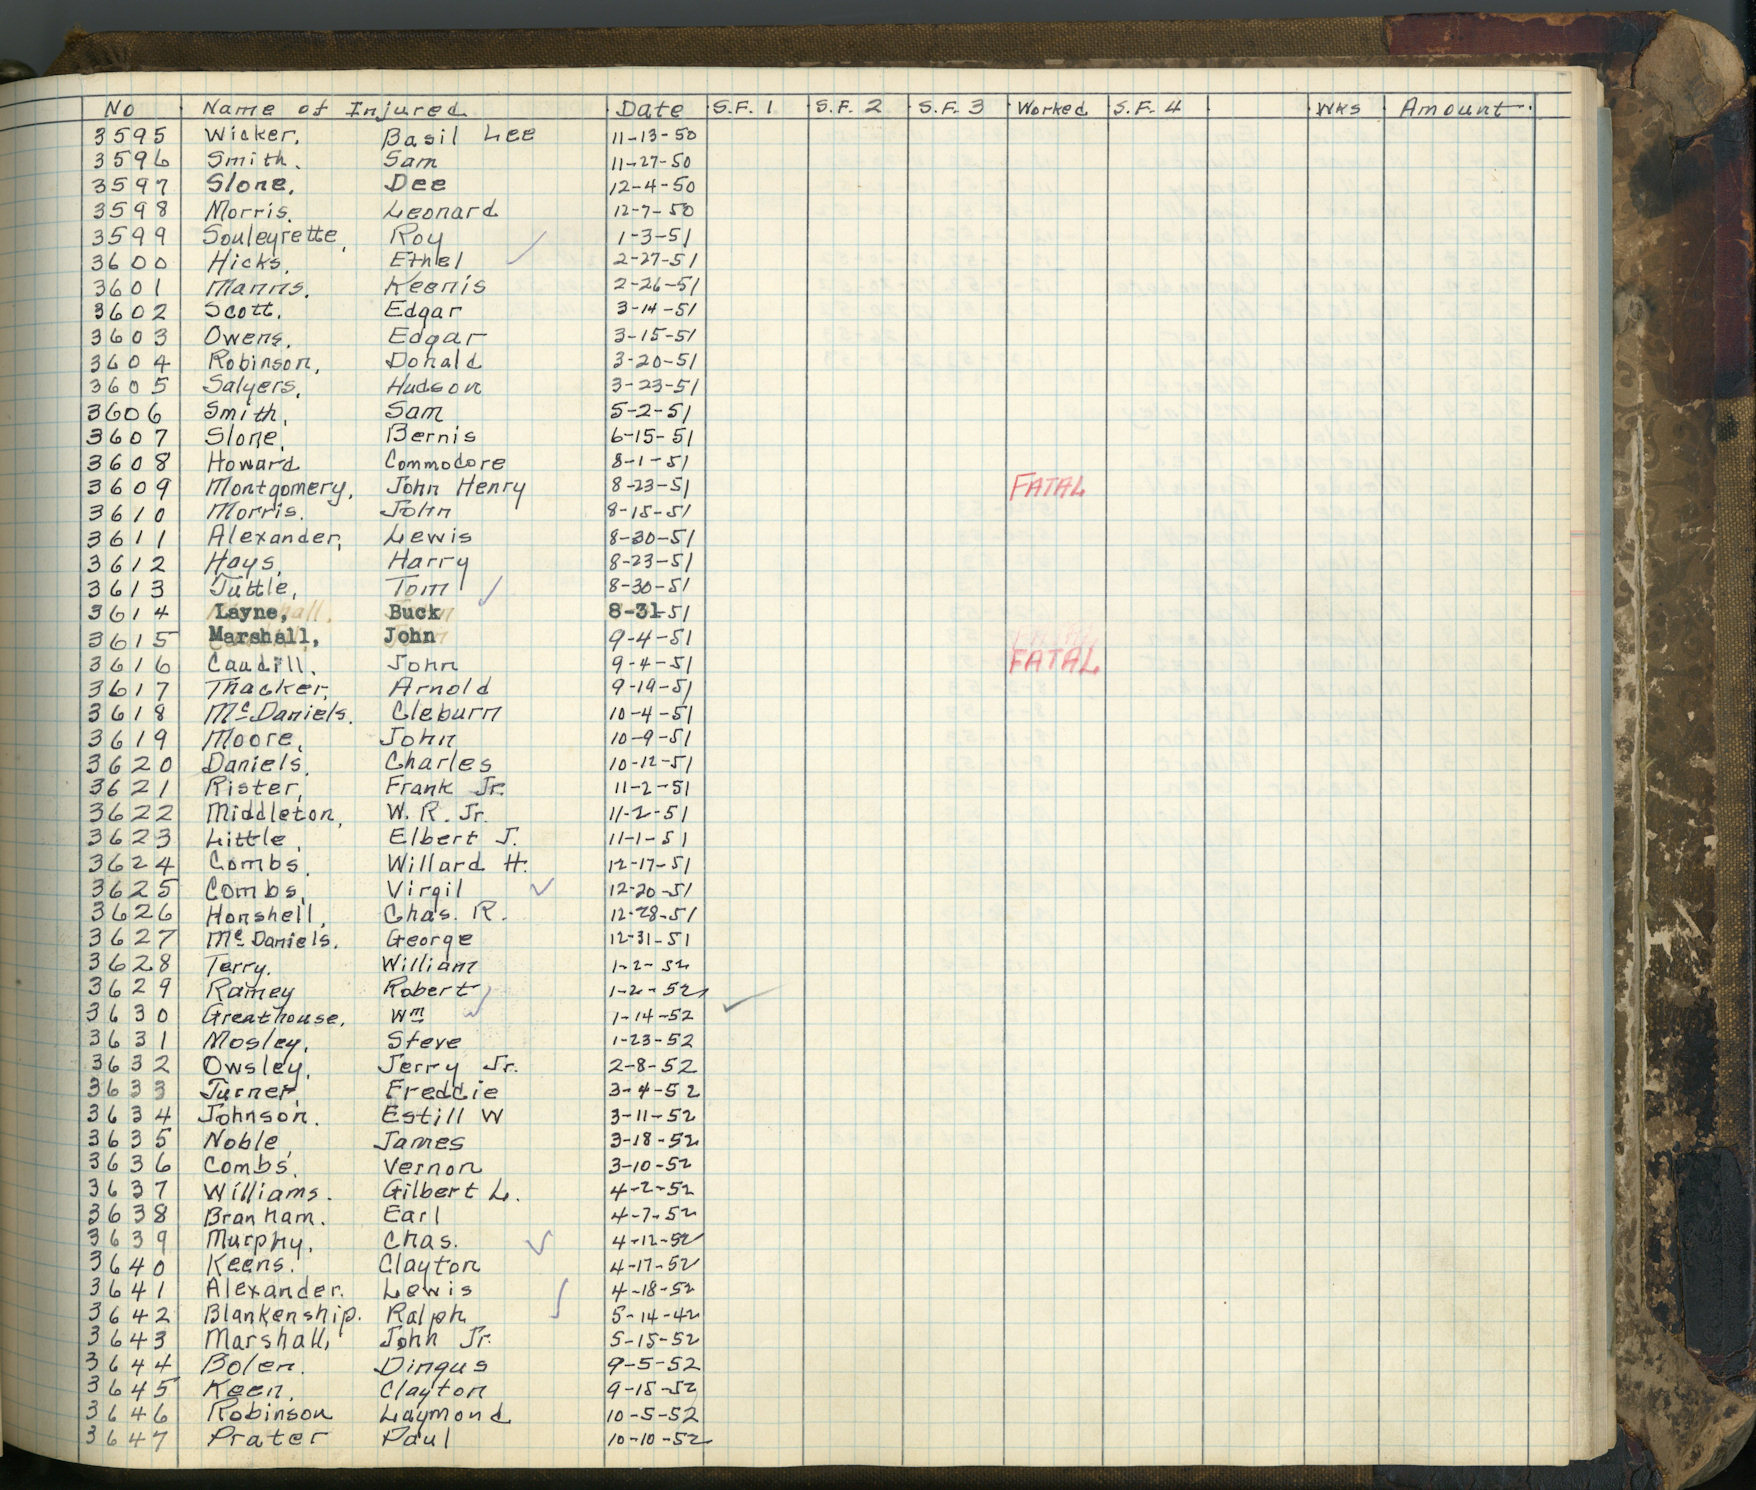 No Name of Injured Date S.F. 1 S.F. 2 S.F. 3 Worked S.F. 4 Wks Amount
3595 Wicker, Basil Lee 11-13-50
3596 Smith, Sam 11-27-50
3597 Slone, Dee 12-4-50
3598 Morris, Leonard 12-7-50
3599 Souleyrette, Roy 1-3-51
3600 Hicks, Ethel 2-27-51
3601 Manns, Keenis 2-26-51
3602 Scott, Edgar 3-14-51
3603 Owens, Edgar 3-15-51
3604 Robinson, Donald 3-20-51
3605 Salyers, Hudson 3-23-51
3606 Smith, Sam 5-2-51
3607 Slone, Bernis 6-15-51
3608 Howard Commodore 8-1-51
3609 Montgomery, John Henry 8-23-51 FATAL
3610 Morris, John 8-15-51
3611 Alexander, Lewis 8-30-51
3612 Hays, Harry 8-23-51
3613 Tuttle, Tom 8-30-51
3614 Layne, Buck 8-31-51
3615 Marshall, John 9-4-51
3616 Caudill, John 9-4-51 FATAL
3617 Thacker, Arnold 9-19-51
3618 McDaniels, Cleburn 10-4-51
3619 Moore, John 10-9-51
3620 Daniels, Charles 10-12-51
3621 Rister, Frank Jr. 11-2-51
3622 Middleton, W. R. Jr. 11-2-51
3623 Little, Elbert J. 11-1-51
3624 Combs, Willard H. 12-17-51
3625 Combs, Virgil ✓ 12-20-51
3626 Honshell, Chas. R. 12-28-51
3627 McDaniels, George 12-31-51
3628 Terry, William 1-2-52
3629 Ramey Robert 1-2-52
3630 Greathouse, Wm 1-14-52 ✓
3631 Mosley, Steve 1-23-52
3632 Owsley, Jerry Jr. 2-8-52
3633 Turner, Freddie 3-4-52
3634 Johnson, Estill W 3-11-52
3635 Noble, James 3-18-52
3636 Combs, Vernon 3-10-52
3637 Williams, Gilbert L. 4-2-52
3638 Branham, Earl 4-7-52
3639 Murphy, Chas. ✓ 4-12-52
3640 Keens, Clayton 4-17-52
3641 Alexander, Lewis 4-18-52
3642 Blankenship, Ralph 5-14-42
3643 Marshall, John Jr. 5-15-52
3644 Bolen, Dingus 9-5-52
3645 Keen, Clayton 9-15-52
3646 Robinson Laymond 10-5-52
3647 Prater Paul 10-10-52